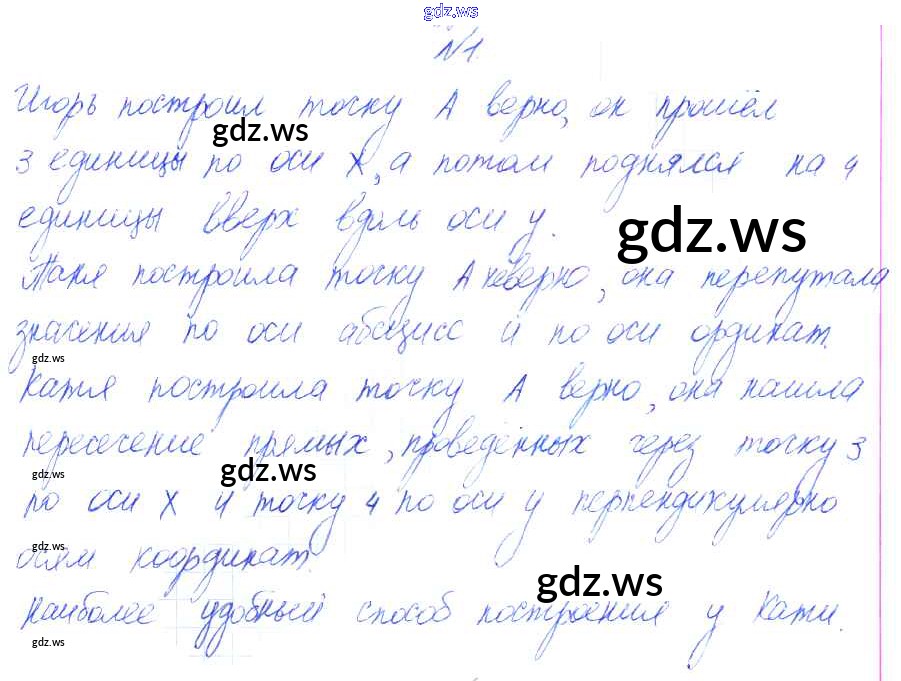 gdz.ws
№1.
Игорь построил точку А верно, он прошёл
gdz.ws
3 единицы по оси X, а потом поднялся на 4
единицы вверх вдоль оси y.
gdz.ws
Таня построила точку А неверно, она перепутала
значения по оси абсцисс и по оси ординат.
gdz.ws
Катя построила точку А верно, она нашла
пересечение прямых, проведённых через точку 3
gdz.ws
gdz.ws
по оси X и точку 4 по оси y перпендикулярно
осям координат.
gdz.ws
gdz.ws
Наиболее удобный способ построения у Кати.
gdz.ws